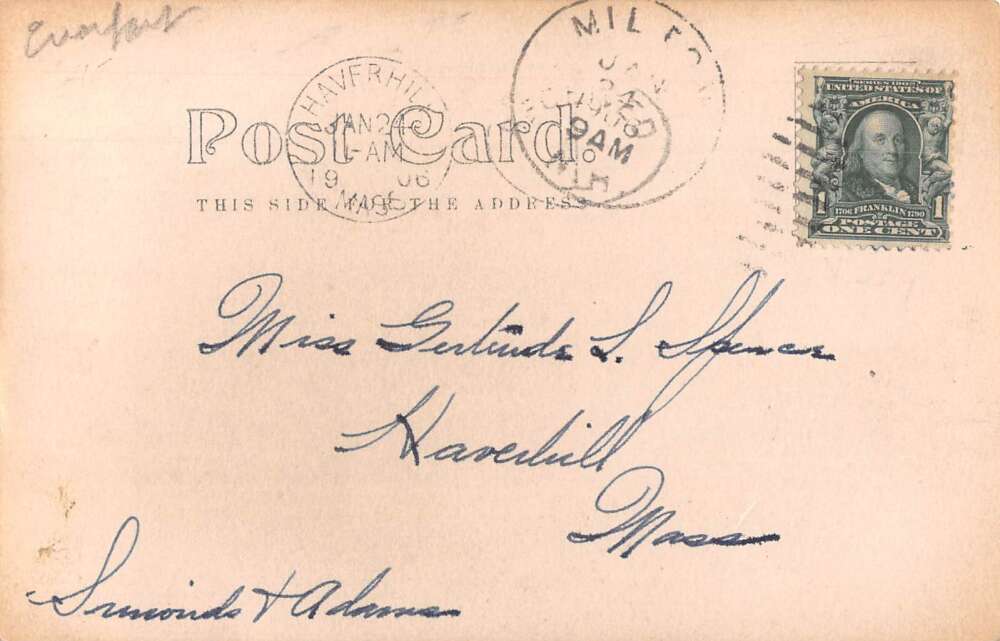 HAVERHILL
JAN 24
-AM
19 06
MASS
MILTON
JAN
24
9 AM
N.H.
SERIES 1902
UNITED STATES OF
AMERICA
1 1706 FRANKLIN 1790 1
POSTAGE
ONE CENT
Post Card.
THIS SIDE FOR THE ADDRESS
Miss Gertrude L. Spence
Haverhill
Mass
Simonds & Adams